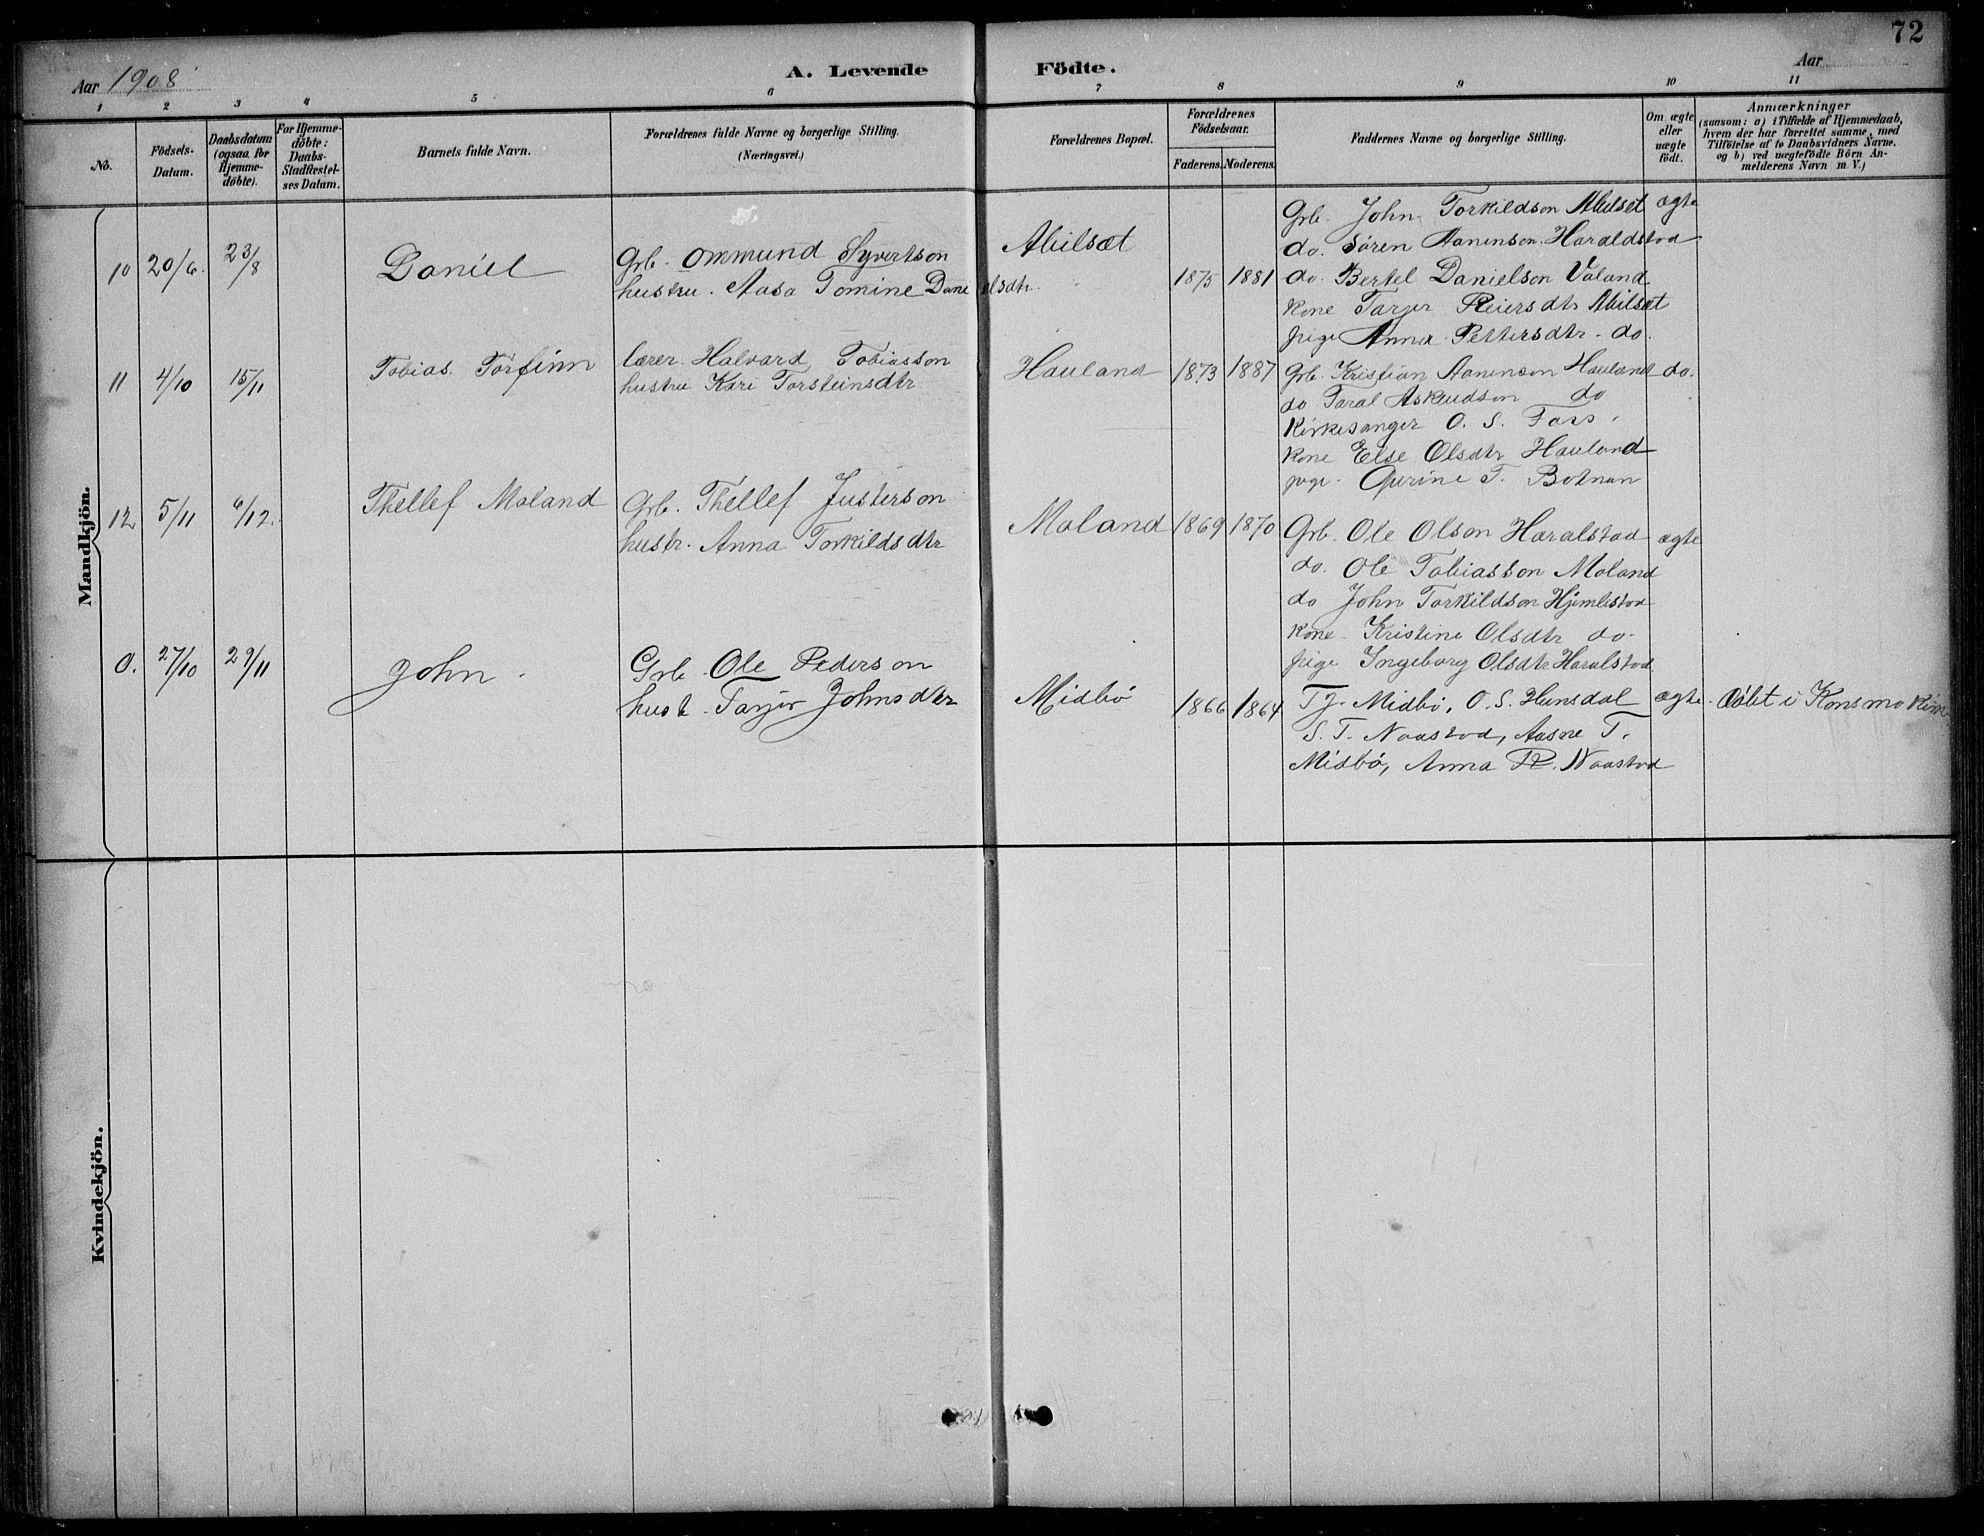 72
Aar 1908
A. Levende Födte.
Aar
1 2 3 4 5 6 7 8 9 10 11
No.
Födsels-Datum.
Daabsdatum (ogsaa for Hjemme-döbte).
For Hjemme-döbte: Daabs-Stadfæstel-ses Datum.
Barnets fulde Navn.
Forældrenes fulde Navne og borgerlige Stilling.
(Næringsvei.)
Forældrenes Bopæl.
Forældrenes Födselsaar.
Faderens. Moderens.
Faddernes Navne og borgerlige Stilling.
Om ægte eller uægte födt.
Anmærkninger
(saasom: a) i Tilfælde af Hjemmedaab,
hvem der har forrettet samme, med
Tilföielse af to Daabsvidners Navne.
og b) ved uægtefödte Börn An-
melderens Navn m. V.)
Mandkjön.
10 20/6. 23/8 Daniel
Grb. Ommund Syvertson
hustru. Aasa Tomine Danielsdtr.
Abilsæt 1875 1881
Grb. John Torkildson Abilsæt ægte
do. Sören Aanenson Haraldstad
do. Bertel Danielson Valand
Kone Tarjer Reiersdtr Abilsæt
pige Anna Pettersdtr. do.
11 4/10 15/11 Tobias. Torfinn
lærer. Halvard Tobiasson
hustru Kari Torsteinsdtr
Hauland 1873 1887
Grb. Kristian Aanenson Hauland do.
do Taral Askeudson do
Kirkesanger O. S. Foss.
Kone Else Olsdtr Hauland
pige. Gurine T. Botnan
12 5/11 6/12. Thellef Moland
Grb. Thellef Justerson
hustr. Anna Torkildsdtr
Moland 1869 1870
Grb. Ole Olson Haralstad ægte
do. Ole Tobiasson Moland
do John Torkildson Hjemlestad
Kone Kristine Olsdtr do.
pige Ingeborg Olsdtr Haralstad
0. 27/10 29/11 John.
Grb. Ole Pederson
hust. Tarjer Johnsdtr
Midbö 1866 1864
T J. Midbö, O. S. Hunsdal ægte. Döbt i Konsmo Kirke
S. T. Naastad, Aasne T.
Midbö, Anna R. Naastad
Kvindekjön.